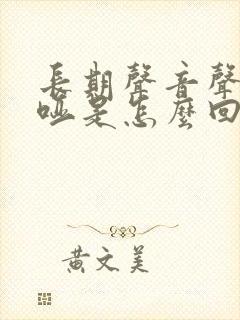 長期聲音聲
啞是怎麼回
黃文美